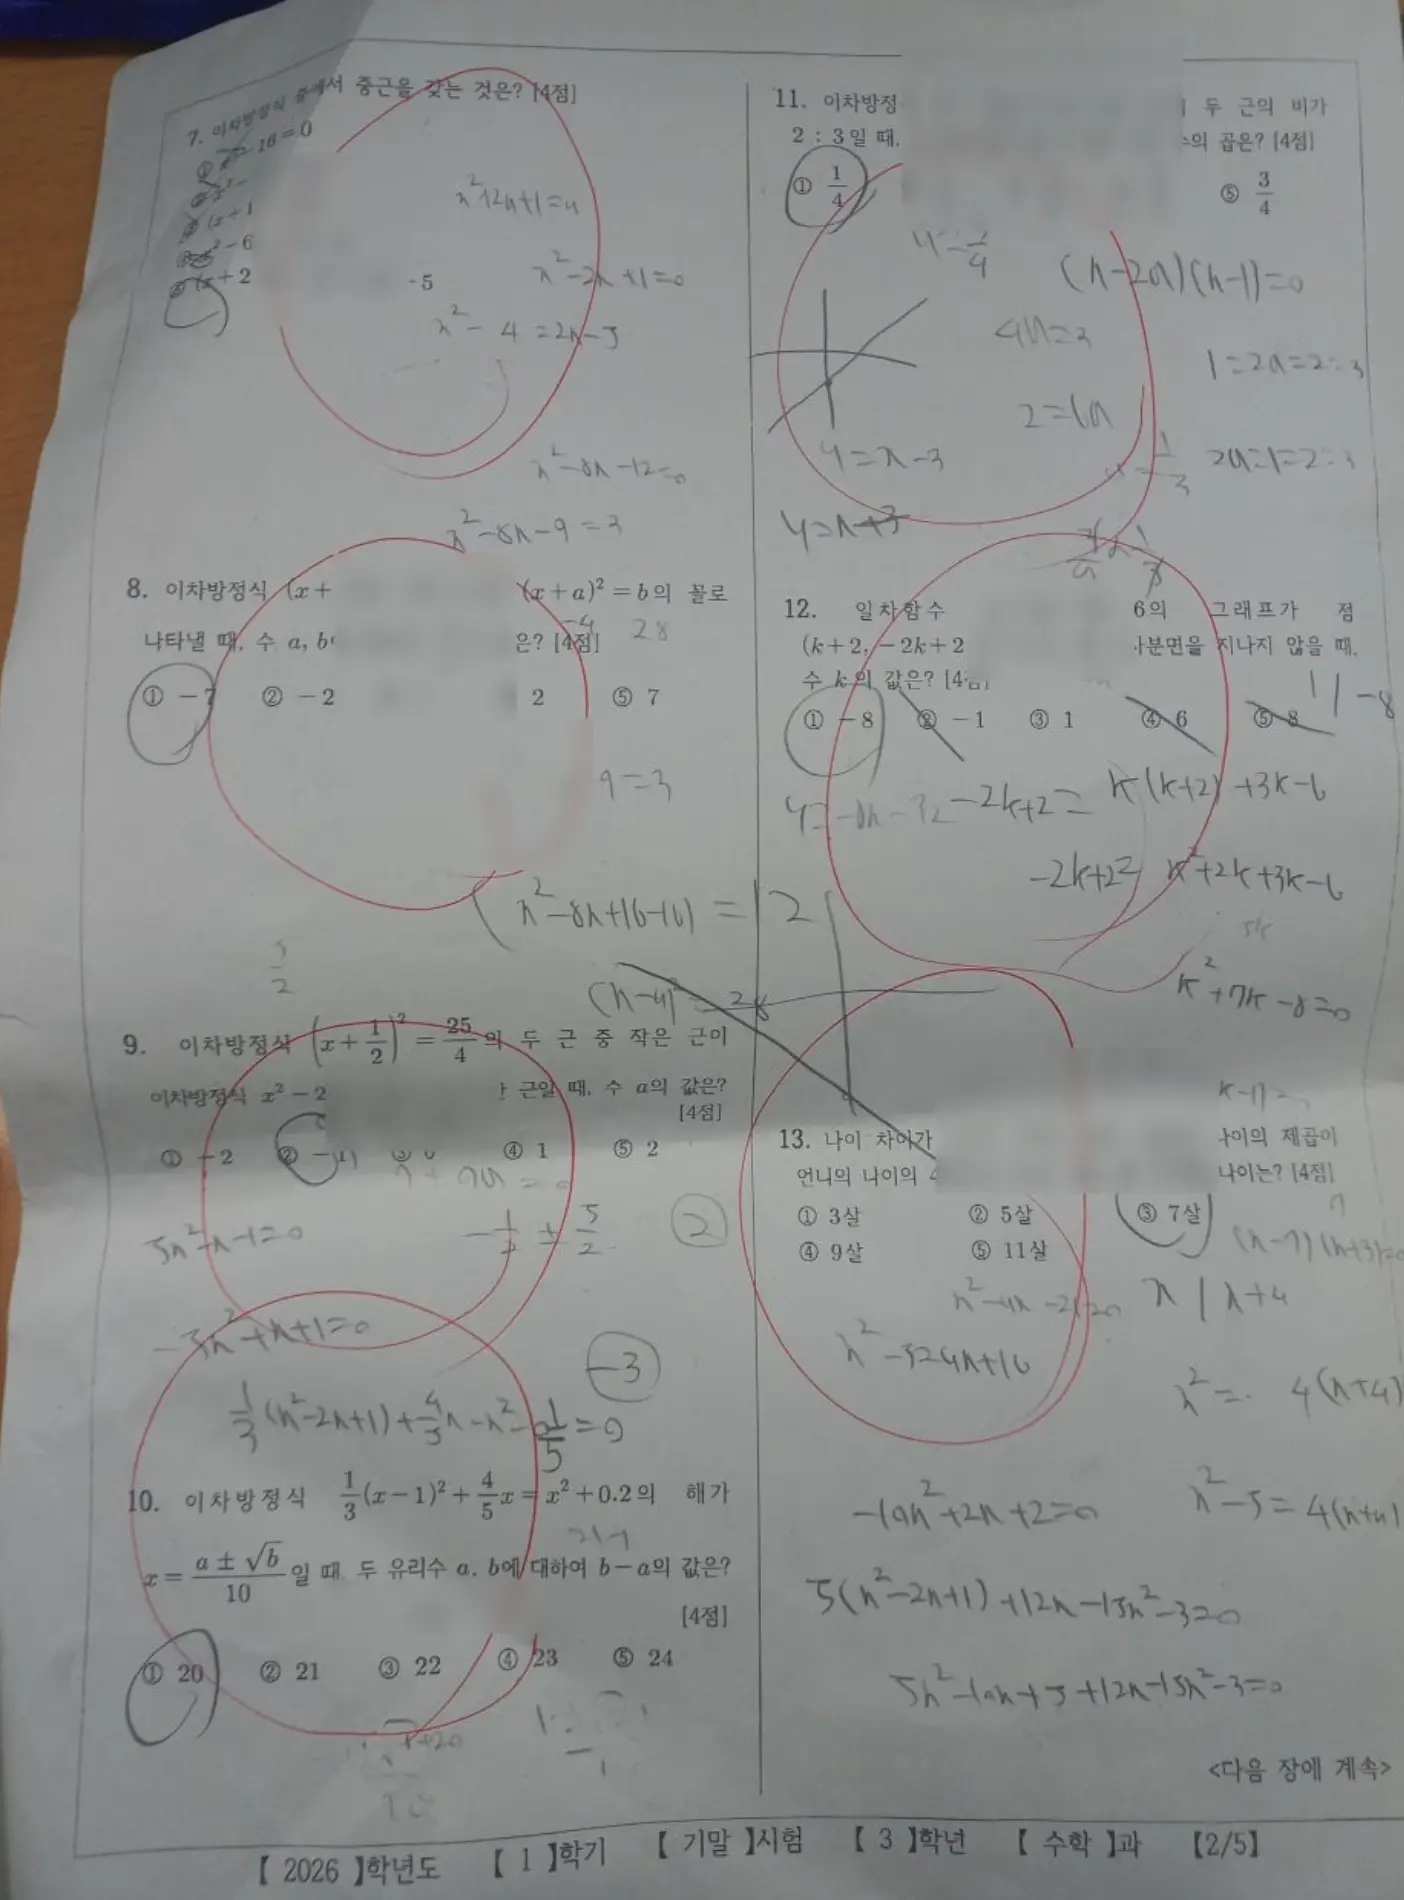 7. 이차방정식 중에서 중근을 갖는 것은? [4점]
① x² - 16 = 0
② x² -
③ (x + 1
④ x² - 6
⑤ (x + 2
-5
x² - 2x + 1 = 0
x² - 4 = 2x - 5
x² - 8x - 12 = 0
x² - 8x - 9 = 3
8. 이차방정식 (x +
(x + a)² = b의 꼴로
나타낼 때, 수 a, b
은? [4점]
-4
28
① -7 ② -2
2 ⑤ 7
9 = 3
(x² - 8x + 16 - 16) = 12
(x - 4)² = 28
5/2
9. 이차방정식 (x + 1/2)² = 25/4의 두 근 중 작은 근이
이차방정식 x² - 2
근일 때, 수 a의 값은?
[4점]
① -2 ② -1
④ 1 ⑤ 2
5x² - x - 1 = 0
-1/2 ± 5/2
2
-5x² + x + 1 = 0
-3
1/3(x² - 2x + 1) + 4/5x - x² - 1/5 = 0
10. 이차방정식 1/3(x - 1)² + 4/5x = x² + 0.2의 해가
x = (a ± √b)/10일 때 두 유리수 a, b에 대하여 b - a의 값은?
21-1
[4점]
① 20 ② 21 ③ 22 ④ 23 ⑤ 24
11. 이차방정
두 근의 비가
2 : 3일 때,
수의 곱은? [4점]
① 1/4
⑤ 3/4
(x - 2a)(x - 1) = 0
4a = 3
1 = 2a = 2 : 3
2 = 6a
y = x - 3
1/3
2a : 1 = 2 : 3
y = x + 3
12. 일차함수
6의 그래프가 점
(k + 2, -2k + 2
사분면을 지나지 않을 때,
수 k의 값은? [4점]
1 | -8
① -8 ② -1 ③ 1 ④ 6 ⑤ 8
y = -8x - 32
-2k + 2 = k(k + 2) + 3k - 6
-2k + 2 = k² + 2k + 3k - 6
5k
k² + 7k - 8 = 0
13. 나이 차이가
나이의 제곱이
언니의 나이의 4
나이는? [4점]
① 3살 ② 5살 ③ 7살
④ 9살 ⑤ 11살
7
(x - 7)(x + 3) = 0
x² - 4x - 21 = 0
x | x + 4
x² - 5 = 4x + 16
x² = 4(x + 4)
x² - 5 = 4(x + 4)
-10x² + 2x + 2 = 0
5(x² - 2x + 1) + 12x - 15x² - 3 = 0
5x² - 10x + 5 + 12x - 15x² - 3 = 0
<다음 장에 계속>
【 2026 】학년도 【 1 】학기 【 기말 】시험 【 3 】학년 【 수학 】과 【2/5】